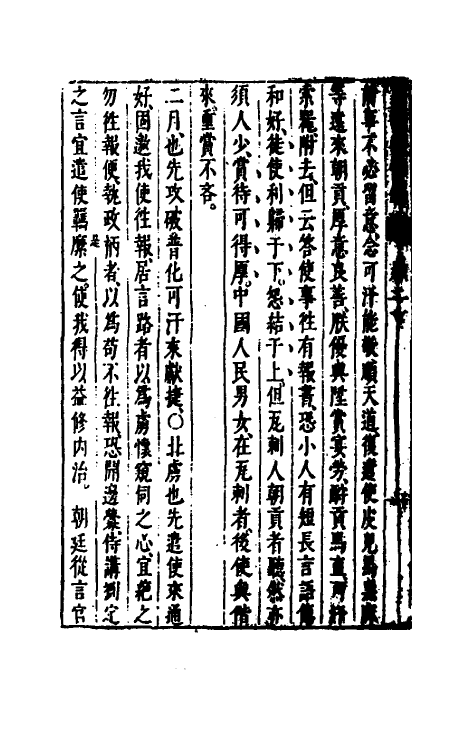 前事不必留意念可汗能敬順天道復遣使皮兒馬黑麻
等遠來朝貢厚意良善朕優與陞賞宴勞酧貢馬直可汗
索附去但云答使事往有報書恐小人有短長言語傷
和好徒使利歸于下怨結于上但瓦剌人朝貢者聽然亦
須人少賞待可得厚中國人民男女在瓦剌者後使與偕
來重賞不吝。
二月也先攻破普化可汗來獻捷〇北虜也先遣使來通
好固邀我使往報居言路者以爲虜懷窺伺之心宜絶之
勿徃報便執政柄者以爲苟不往報恐開邊釁侍講劉定
之言宜遣使羈縻之使我得以益修内治。朝廷從言官
是